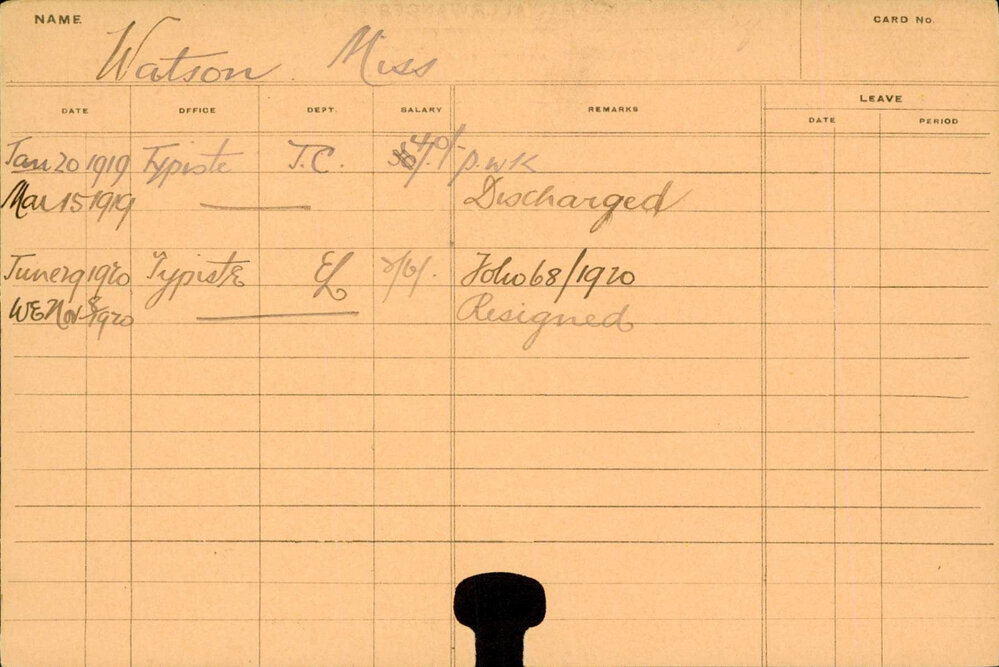 NAME CARD No.
Watson Miss
LEAVE
DATE OFFICE DEPT. SALARY REMARKS DATE PERIOD
Jan 20 1919 Typiste T.C. 40/- p.wk
Mar 15 1919 Discharged
June 29 1920 Typiste EL Folio 68/1920
WE Nov 8 1920 Resigned